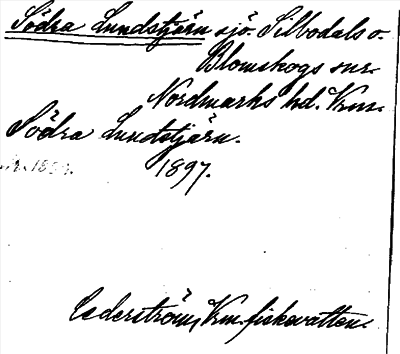 Södra Lundstjärn sjö. Silbodals o.
Blomskogs snr.
Nordmarks hd. Vrm.
Södra Lundstjärn.
1897.
Cederström, Vrm. fiskevatten.